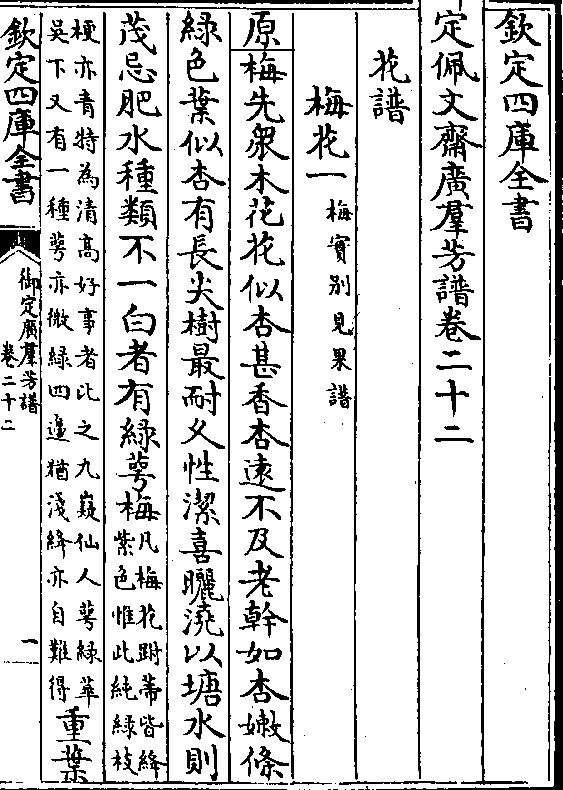 欽定四庫全書
定佩文齋廣羣芳譜卷二十二
花譜
梅花一梅實別見果譜
原梅先衆木花花似杏甚香杏逺不及老幹如杏嫩條
綠色葉似杏有長尖樹最耐久性潔喜曬澆以塘水則
茂忌肥水種類不一白者有綠萼梅凡梅花跗蒂皆絳
紫色惟此純綠枝
梗亦青特為清高好事者比之九嶷仙人萼綠華
吳下又有一種萼亦微綠四邊猶淺絳亦自難得重葉
欽定四庫全書
御定廣羣芳譜
卷二十二
一